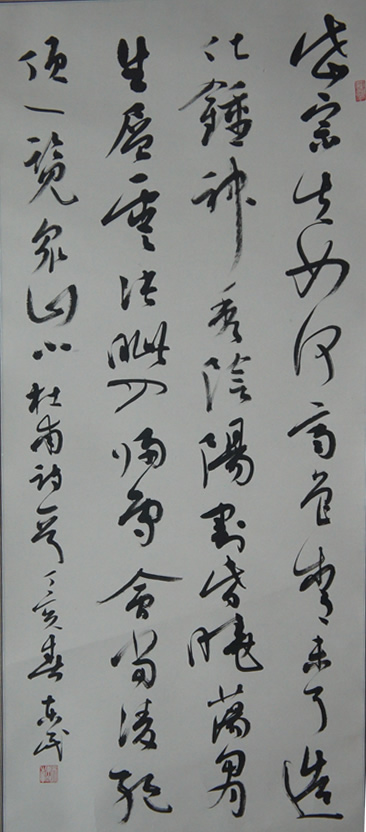 岱宗夫如何齊魯青未了造
化鍾神秀陰陽割昏曉蕩胸
生層雲決眥入歸鳥會當凌絕
頂一覽眾山小杜甫詩一首丁亥春東民